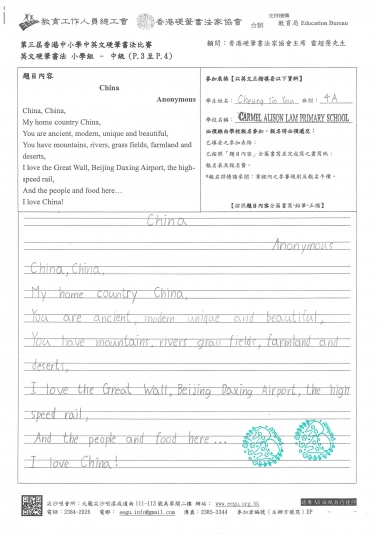 教育工作人員總工會 香港硬筆書法家協會 合辦 支持機構 教育局 Education Bureau
第三屆香港中小學中英文硬筆書法比賽 顧問：香港硬筆書法家協會主席
英文硬筆書法 小學組 - 中級 (P.3 至 P.4)
題目內容
China
Anonymous
China, China,
My home country China,
You are ancient, modern, unique and beautiful,
You have mountains, rivers, grass fields, farmland and
deserts,
I love the Great Wall, Beijing Daxing Airport, the high-
speed rail,
And the people and food here…
I love China!
參加表格【以英文正楷填寫以下資料】
學生姓名： Cheung Sin Yau 班別： 4A
學校名稱： CARMEL ALISON LAM PRIMARY SCHOOL
必須經由學校報名參加，報名時必須遞交：
已填妥之參加表格；
報名表及報名費。
China
Anonymous
China, China,
My home country China,
You are ancient, modern unique and beautiful,
You have mountains, rivers grass fields, farmland and
deserts,
I love the Great Wall, Beijing Daxing Airport, the high
speed rail,
And the people and food here ...
I love China!
網站： www.eegu.org.hk
電話：2384-2026 電郵： eegu.info@gmail.com 傳真：2385-3344 參加者編號 (主辦方填寫) EP -